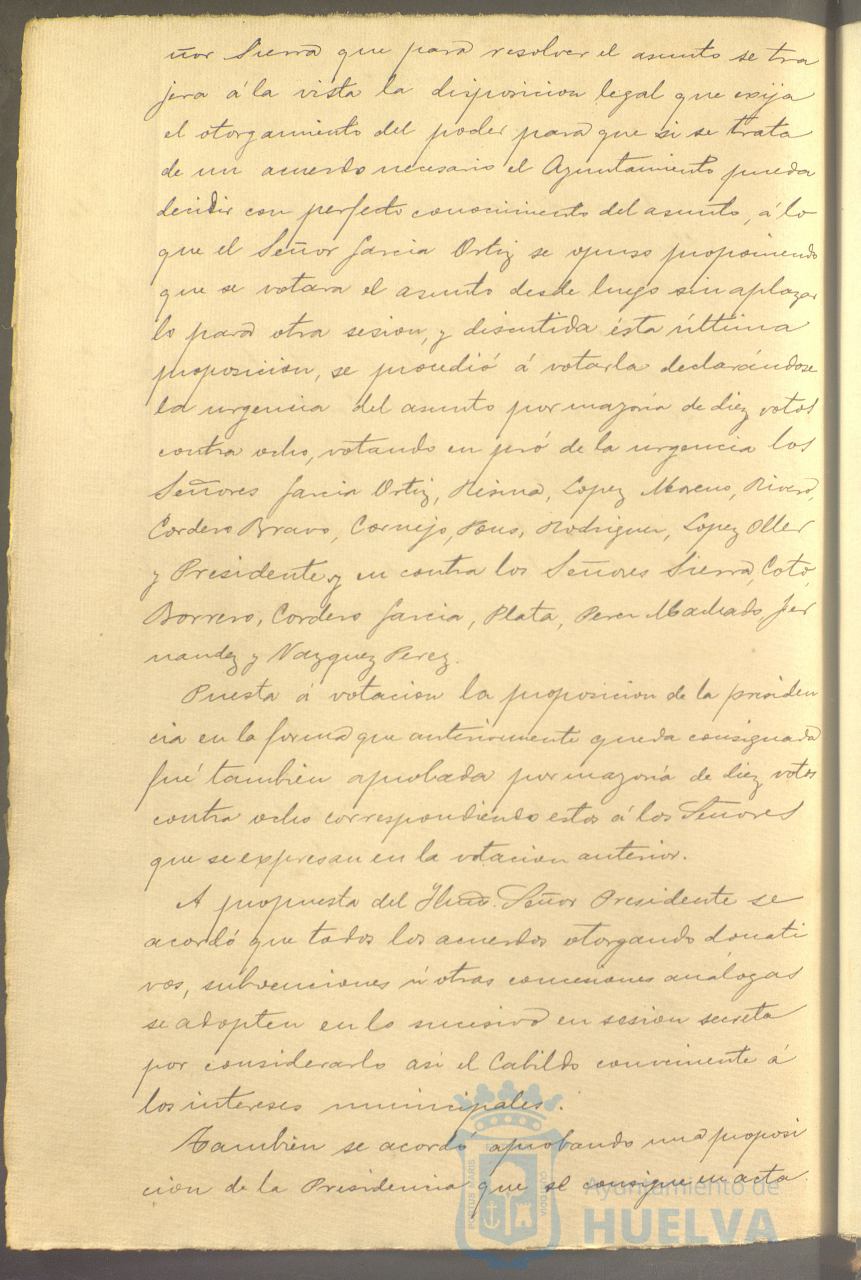 ñor Sierra que para resolver el asunto se tra
jera á la vista la disposicion legal que exija
el otorgamiento del poder para que si se trata
de un acuerdo necesario el Ayuntamiento pueda
decidir con perfecto conocimiento del asunto, á lo
que el Señor Garcia Ortiz se opuso proponiendo
que se votara el asunto desde luego sin aplazar
lo para otra sesion, y discutida ésta última
proposicion, se procedió á votarla declarándose
la urgencia del asunto por mayoría de diez votos
contra ocho, votando en pró de la urgencia los
Señores Garcia Ortiz, Lopez Moreno, Rivero,
Cordero Bravo, Cornejo, Pons, Rodriguez, Lopez Oller
y Presidente y en contra los Señores Sierra, Coto,
Borrero, Cordero Garcia, Plata, Perez Machado, Fer
nandez y Vazquez Perez.
Puesta á votacion la proposicion de la presiden
cia en la forma que anteriormente queda consignada
fué también aprobada por mayoría de diez votos
contra ocho correspondiendo estos á los Señores
que se expresan en la votacion anterior.
A propuesta del Iltmo. Señor Presidente se
acordó que todos los acuerdos otorgando donati
vos, subvenciones ú otras concesiones análogas
se adopten en lo sucesivo en sesion secreta
por considerarlo asi el Cabildo conveniente á
los intereses municipales.
Tambien se acordó aprobando una proposi
cion de la Presidencia que se consigne en acta
PORTUS MARIS
CUSTODIA
Ayuntamiento de
HUELVA